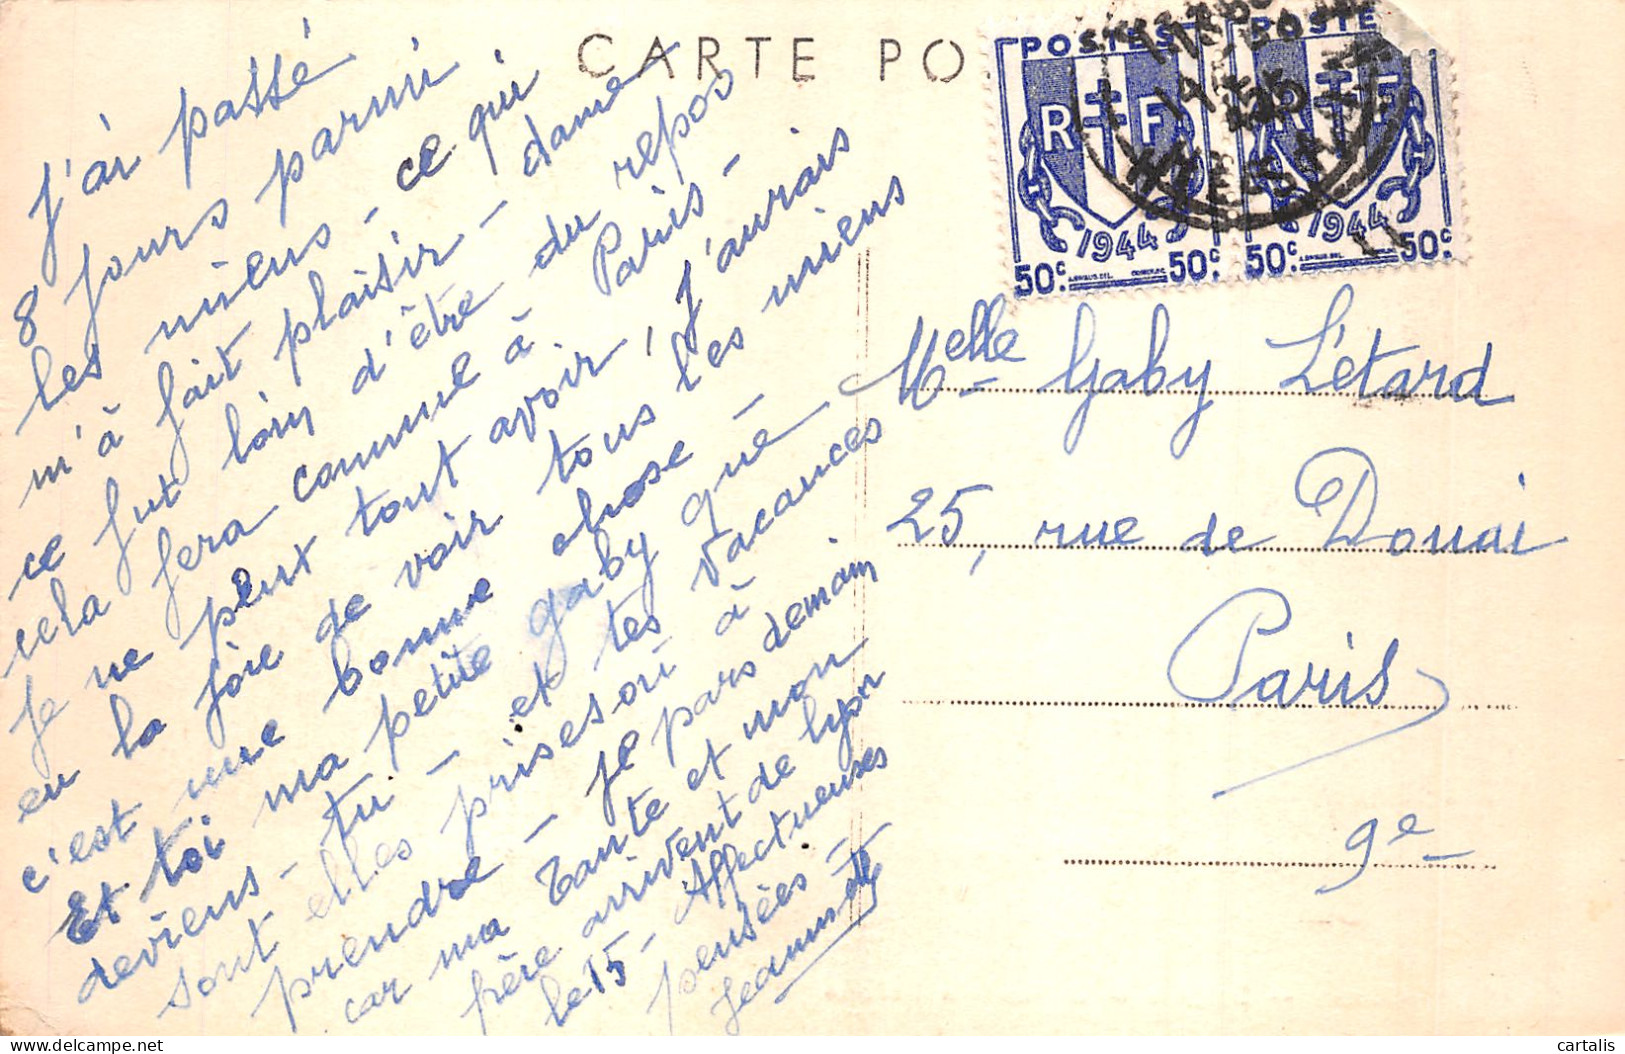 CARTE PO
J'ai passé
8 jours parmi
les miens - ce qui
m'à fait plaisir - dame
ce fut loin d'être du repos
cela sera comme à Paris -
je ne peut tout avoir, j'aurais
eu la joie de voir tous les miens
c'est une bonne chose -
Et toi ma petite gaby que
deviens - tu - et tes vacances
sont elles prises ou à
prendre - je pars demain
car ma Tante et mon
frère arrivent de lyon
le 15 - Affectueuses
pensées -
Jeannette
POSTES
RF
1944
50c 50c
POSTE
RF
1944
50c 50c
Melle Gaby Létard
25, rue de Douai
Paris
9e
cartalis